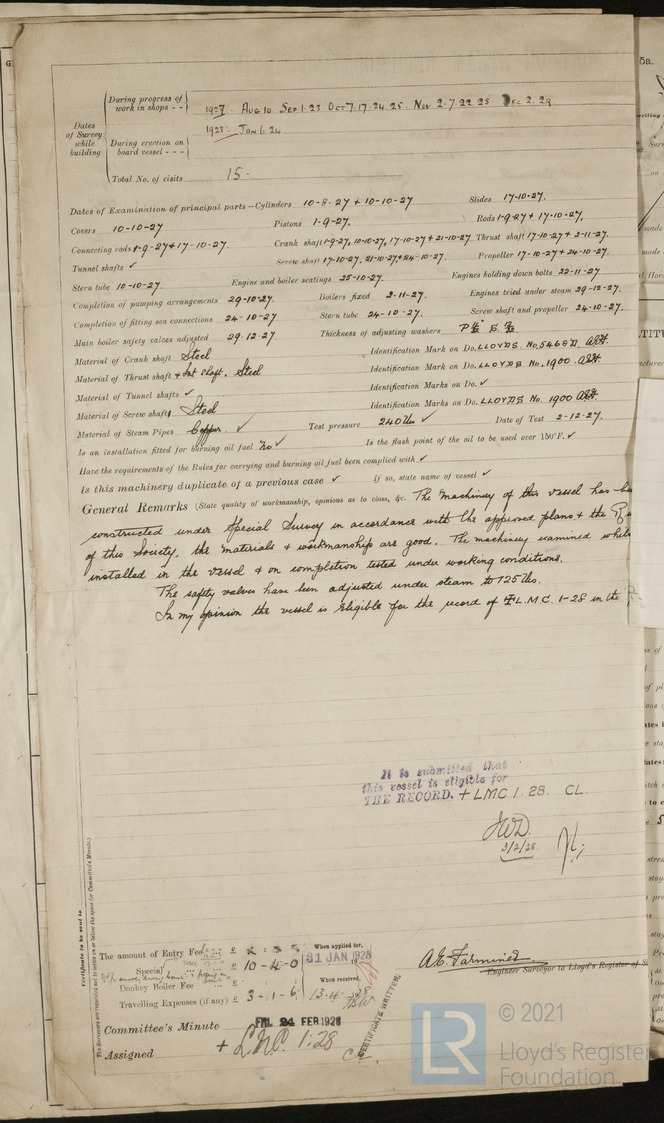 During progress of work in shops - - 1927. Aug 10. Sep 1. 23 Oct 7. 17. 24. 25. Nov 2. 7. 22 25 Dec 2. 29
1928. Jan 6. 24
Dates of Survey while building
During erection on board vessel - - -
Total No. of visits 15.
Dates of Examination of principal parts—Cylinders 10-8-27 + 10-10-27 Slides 17-10-27.
Covers 10-10-27 Pistons 1-9-27. Rods 1-9-27 + 17-10-27,
Connecting rods 1-9-27 + 17-10-27. Crank shaft 1-9-27, 10-10-27, 17-10-27 + 21-10-27 Thrust shaft 17-10-27 + 2-11-27.
Tunnel shafts ✓ Screw shaft 17-10-27, 21-10-27 + 24-10-27. Propeller 17-10-27 + 24-10-27.
Stern tube 10-10-27. Engine and boiler seatings 25-10-27. Engines holding down bolts 22-11-27
Completion of pumping arrangements 29-10-27. Boilers fixed 2-11-27. Engines tried under steam 29-12-27.
Completion of fitting sea connections 24-10-27 Stern tube 24-10-27. Screw shaft and propeller 24-10-27.
Main boiler safety valves adjusted 29-12-27 Thickness of adjusting washers
Material of Crank shaft Steel Identification Mark on Do. LLOYDS. No.
Material of Thrust shaft + Int Shaft. Steel Identification Mark on Do. LLOYDS No. 1900
Material of Tunnel shafts ✓ Identification Marks on Do. ✓
Material of Screw shafts Steel Identification Marks on Do. LLOYDS No. 1900
Material of Steam Pipes Copper. ✓ Test pressure 240 lbs ✓ Date of Test 2-12-27.
Is an installation fitted for burning oil fuel No ✓ Is the flash point of the oil to be used over 150°F. ✓
Have the requirements of the Rules for carrying and burning oil fuel been complied with ✓
Is this machinery duplicate of a previous case ✓ If so, state name of vessel ✓
General Remarks (State quality of workmanship, opinions as to class, &c. The Machinery of this vessel has
constructed under Special Survey in accordance with the approved plans + the
of this Society, the materials + workmanship are good. The machinery examined
installed in the vessel & on completion tested under working conditions.
The safety valves have been adjusted under steam to 125 lbs.
In my opinion the vessel is eligible for the record of + L.M.C. 1-28 in the
It is submitted that
this vessel is eligible for
THE RECORD. + LMC 1. 28. CL.
JWD.
3/2/28.
Certificate to be sent to
The amount of Entry Fee £ When applied for,
Special £ 10-4-0 31 JAN 1928
Donkey Boiler Fee £ When received,
Travelling Expenses (if any) £ 3-1-6 13.4.28
CERTIFICATE WRITTEN.
A.E. Farmined
Engineer Surveyor to Lloyd's Register of S
Committee's Minute FRI. 24 FEB 1928
Assigned + L.M.C. 1:28
LR
© 2021
Lloyd's Register
Foundation